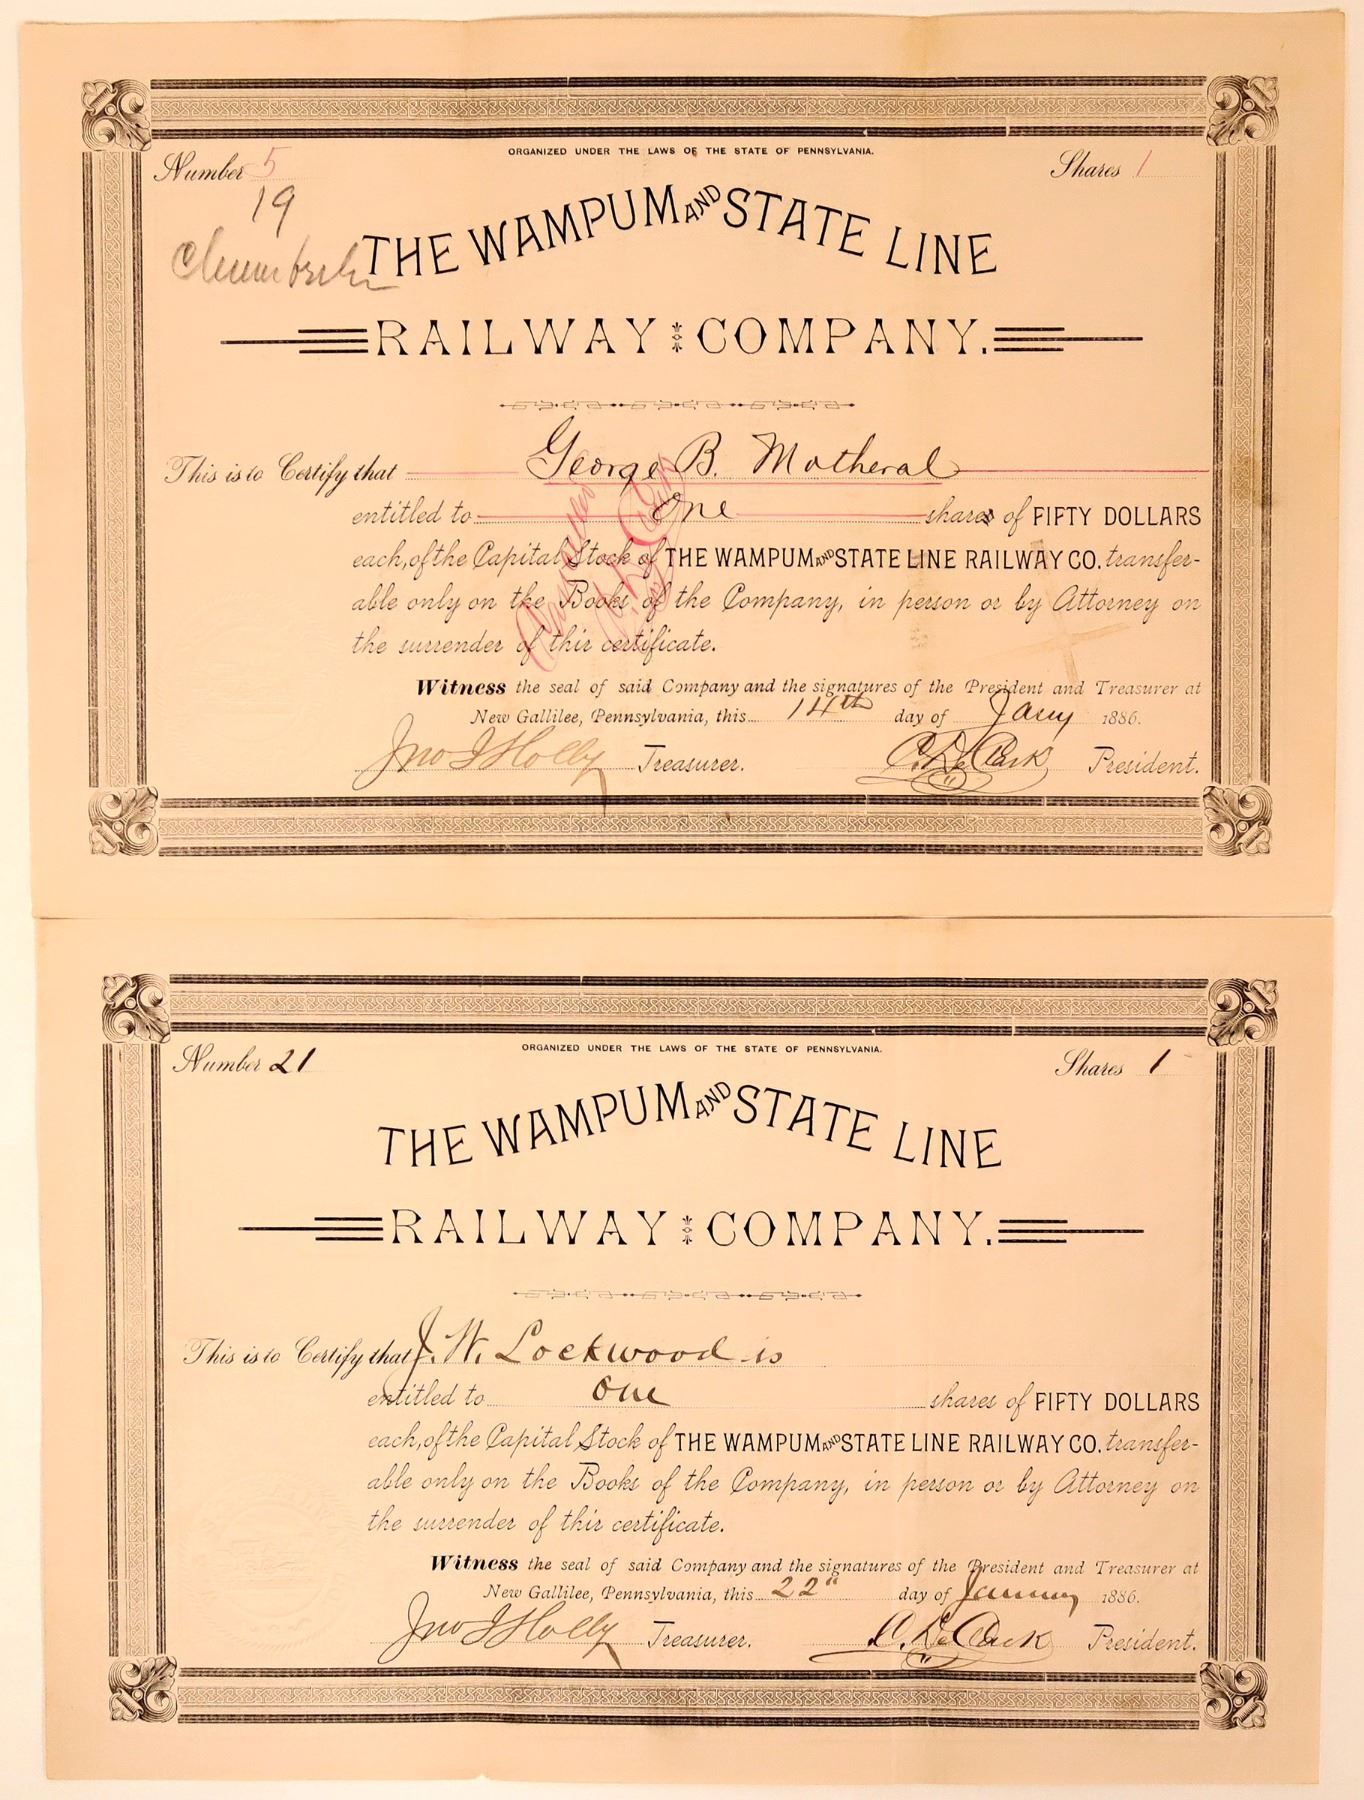 ORGANIZED UNDER THE LAWS OF THE STATE OF PENNSYLVANIA.
Number 5
Shares 1
19
THE WAMPUM AND STATE LINE
RAILWAY COMPANY.
This is to Certify that George B. Motheral
entitled to One shares of FIFTY DOLLARS
each, of the Capital Stock of THE WAMPUM AND STATE LINE RAILWAY CO. transfer-
able only on the Books of the Company, in person or by Attorney on
the surrender of this certificate.
Witness the seal of said Company and the signatures of the President and Treasurer at
New Gallilee, Pennsylvania, this 14th day of Jany 1886.
Jno J Holly Treasurer. President.
ORGANIZED UNDER THE LAWS OF THE STATE OF PENNSYLVANIA.
Number 21
Shares 1
THE WAMPUM AND STATE LINE
RAILWAY COMPANY.
This is to Certify that J. W. Lockwood is
entitled to One shares of FIFTY DOLLARS
each, of the Capital Stock of THE WAMPUM AND STATE LINE RAILWAY CO. transfer-
able only on the Books of the Company, in person or by Attorney on
the surrender of this certificate.
Witness the seal of said Company and the signatures of the President and Treasurer at
New Gallilee, Pennsylvania, this 22" day of January 1886.
Jno J Holly Treasurer. President.